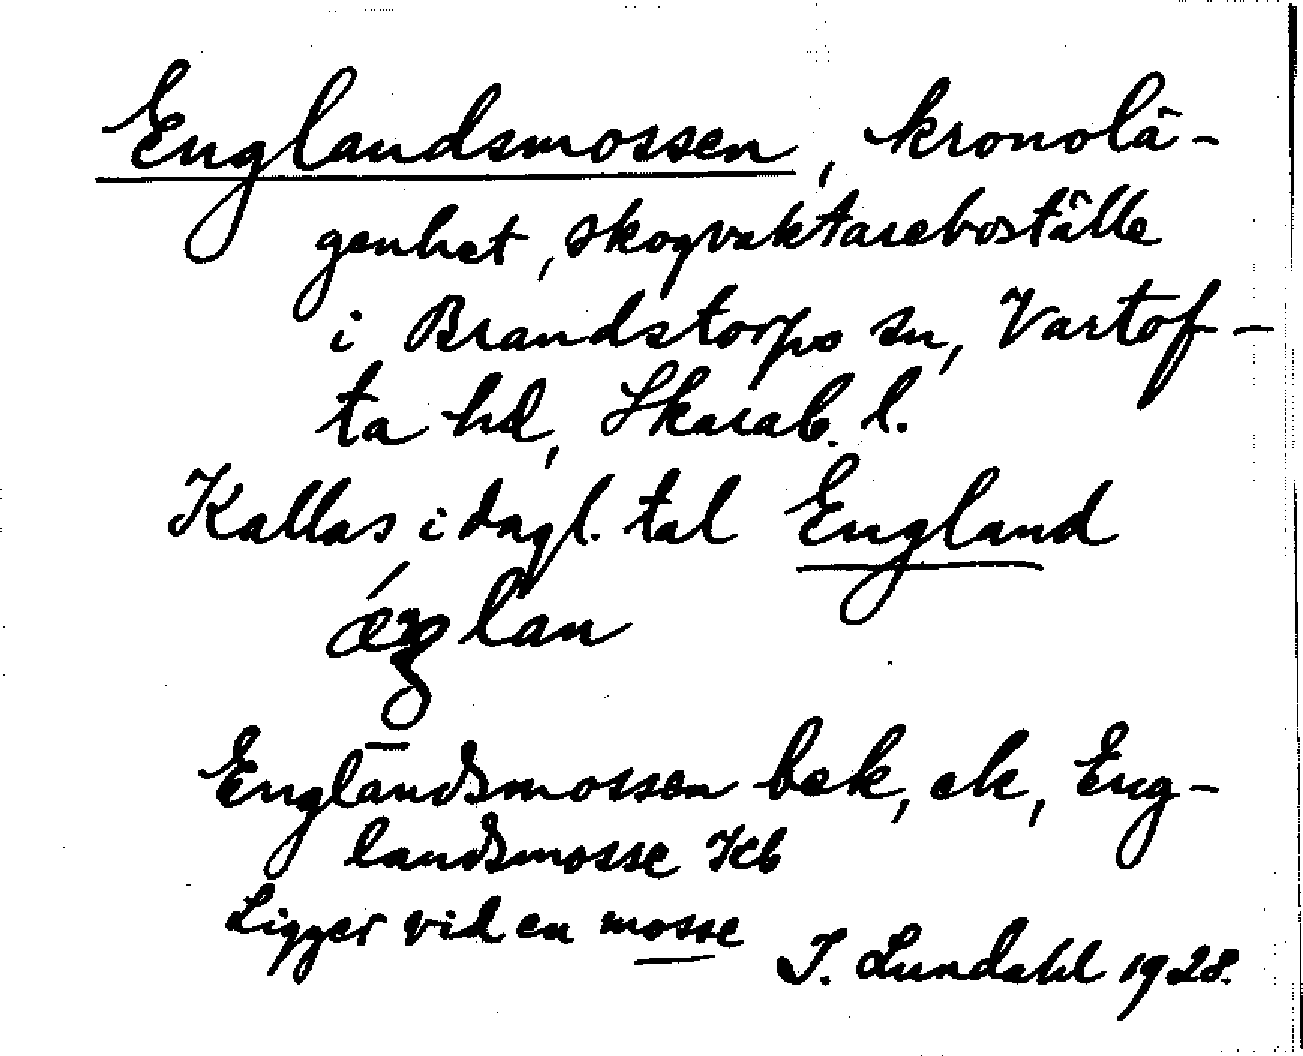 Englandsmossen, kronolä-
genhet, skogvaktareboställe
i Brandstorps sn, Vartof-
ta hd, Skarab. l.
Kallas i dagl. tal England
Englandsmossen bek, ek, Eng-
landsmosse Kb
Ligger vid en mosse
I. Lundahl 1928.